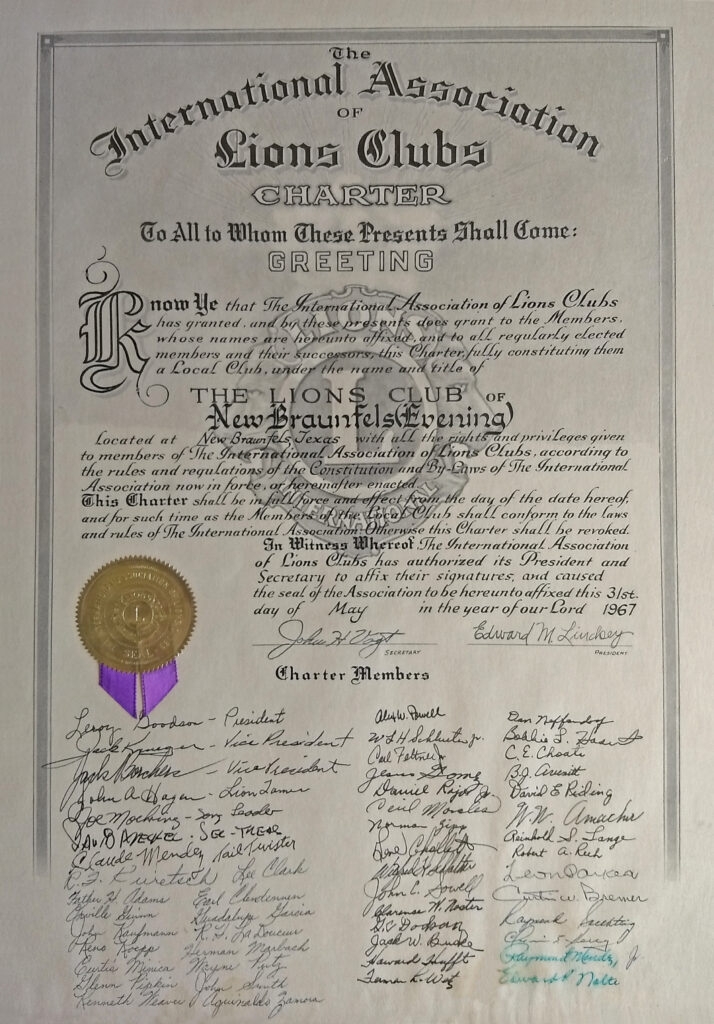 The
International Association
OF
Lions Clubs
CHARTER
To All to Whom These Presents Shall Come:
GREETING
Know Ye that The International Association of Lions Clubs
has granted, and by these presents does grant to the Members,
whose names are hereunto affixed, and to all regularly elected
members and their successors, this Charter, fully constituting them
a Local Club, under the name and title of
THE LIONS CLUB OF
New Braunfels (Evening)
Located at New Braunfels, Texas with all the rights and privileges given
to members of The International Association of Lions Clubs, according to
the rules and regulations of the Constitution and By-Laws of The International
Association now in force, or hereinafter enacted.
This Charter shall be in full force and effect from the day of the date hereof,
and for such time as the Members of the Local Club shall conform to the laws
and rules of The International Association. Otherwise this Charter shall be revoked.
In Witness Whereof The International Association
of Lions Clubs has authorized its President and
Secretary to affix their signatures, and caused
the seal of the Association to be hereunto affixed this 31st.
day of May in the year of our Lord 1967
John H Vogt Edward M. Lindsey
SECRETARY PRESIDENT
SEAL
Charter Members
Leroy Goodson - President
Jack Krueger - Vice President
Jack Borchers - Vice President
John A. Hagen - Lion Tamer
Joe Mocking - Song Leader
Sec-Treas
Claude Mendez Tail Twister
R. F. Kuretsch Lee Clark
H. Adams Earl Clendennen
Orville Guadalupe Garcia
John Kaufmann R. F. La Doucer
Reno Koepp Herman Marbach
Curtis Mimica Wayne
Glenn Pipkin John Smith
Kenneth Weaver Aquinaldo Zamora
Alex W. Powell
W L H Schlueter Jr.
Carl
Jesus
Daniel Jr.
Cecil Morales
Norman Zipp
Rene
John C. Sowell
Clarence W.
Dodson
Jack W. Burke
Howard Hufft
Dan Neffendorf
Bobbie L.
C. E. Choate
B.J.
David E Riding
W. W. Amacher
Reinhold S. Lange
Robert A. Rech
Leon Parker
Curtis W. Bremer
Raymond
Raymond Mendez Jr
Edward Nolte